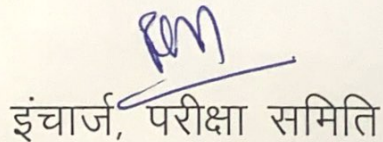 इंचार्ज, परीक्षा समिति